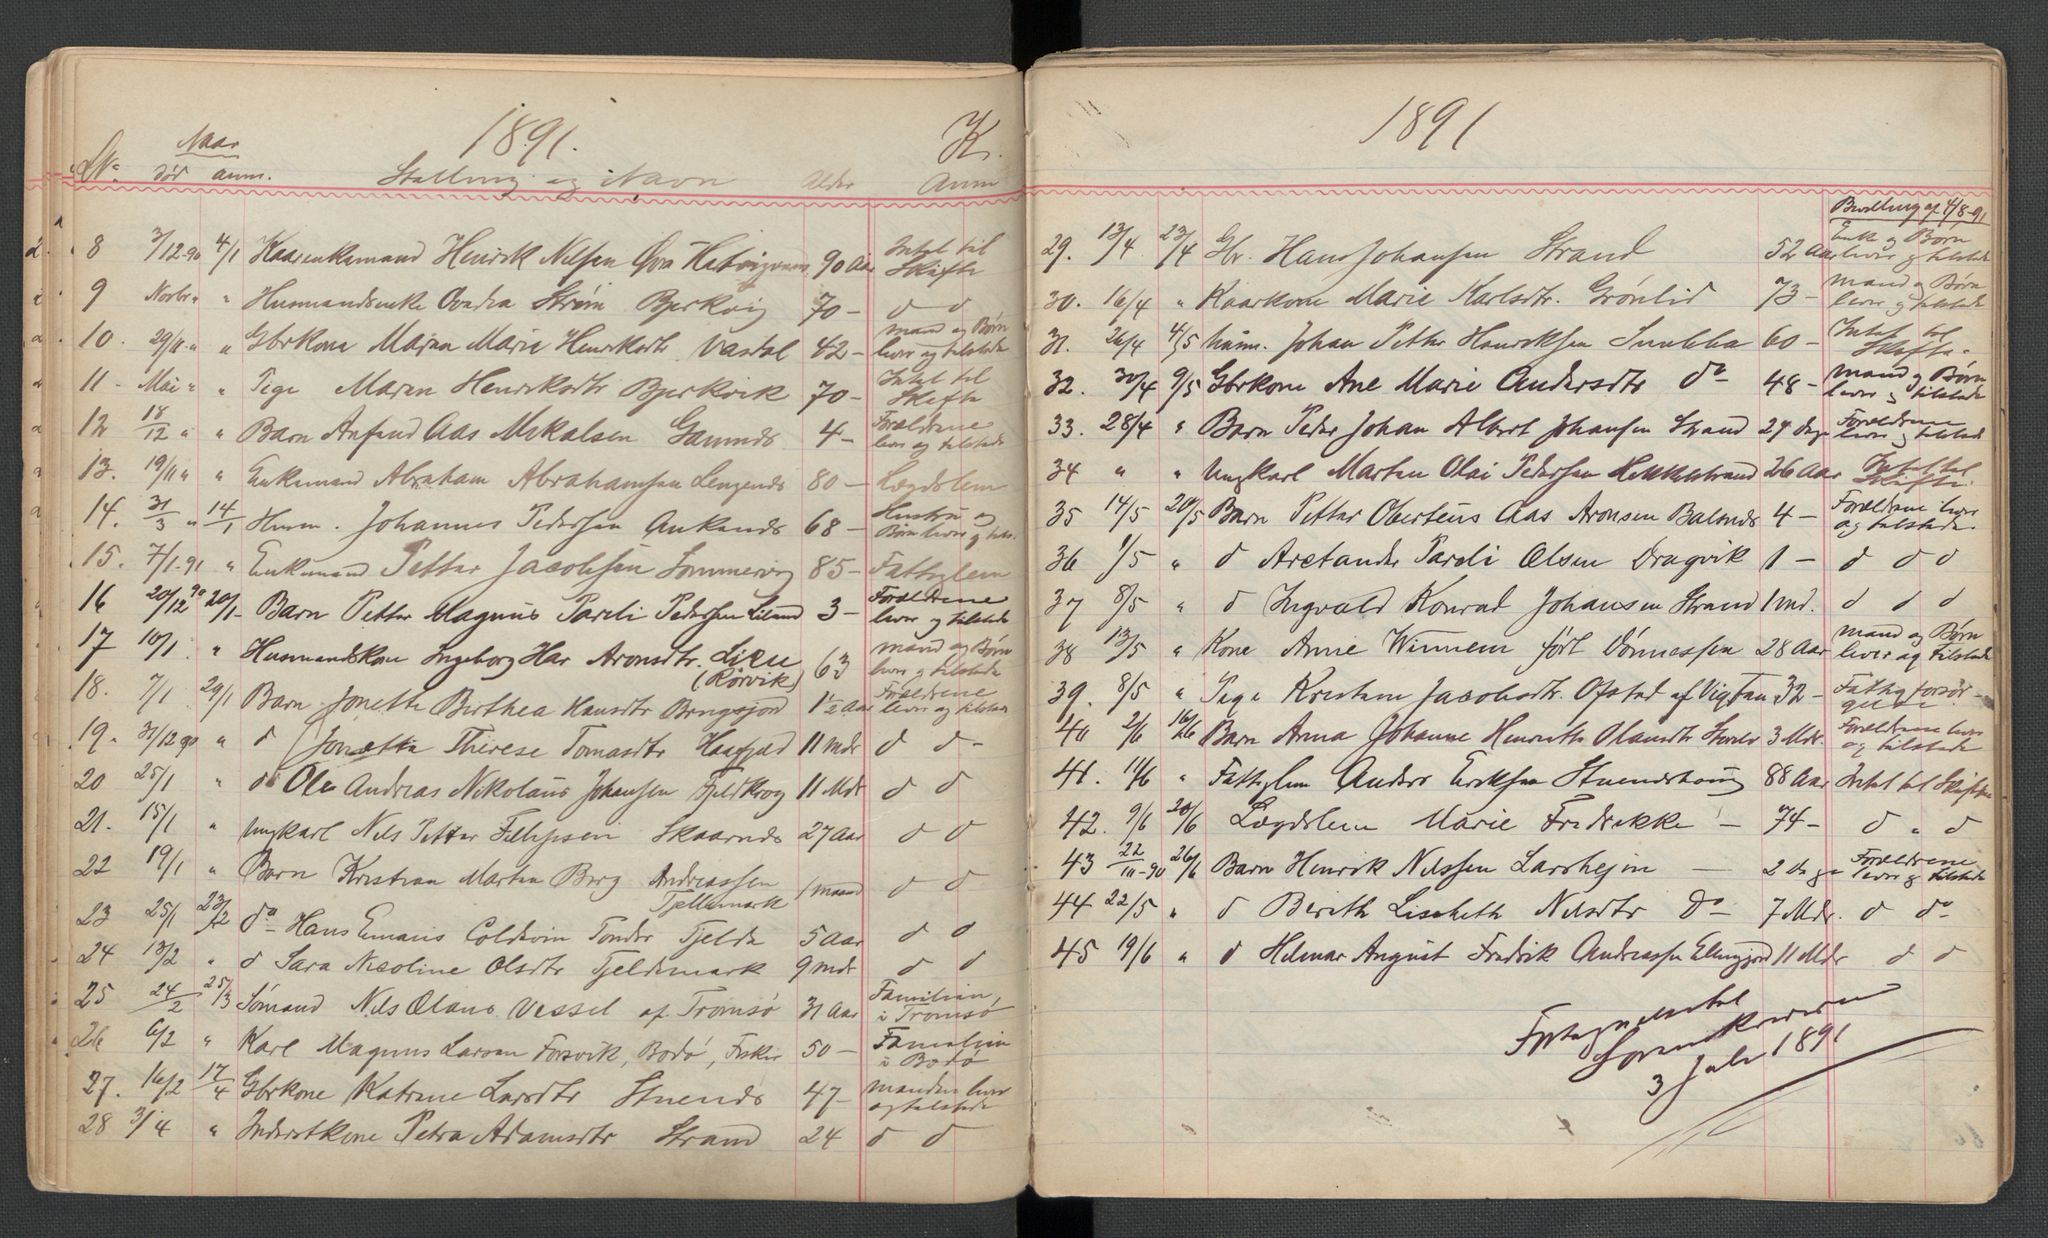 1891.
K.
No Naar
død anm. Stilling og Navn Alder Anm
8 3/12-90 4/1 Kaarenkemand Henrik Nilsen Øvre 90 Aar Intet til Skifte
9 Novbr " " Husmandsenke Strøm Bjerkvig 70 - d d
10. 29/11 - " " Gbrkone Maren Marie Henriksdtr Vasdal 42 - mand og Børn lever og tilstede
11 - Mai " " Pige Maren Henriksdtr Bjerkvik 70 - Intet til Skifte
12 18/12 " " Barn Anfind Aas Mikalsen 4 - Forældrene lever og tilstede
13. 19/11 " " Enkemand Abraham Abrahamsen Lengenes 80 - Lægdslem
14. 31/3 " 14/1 Husm. Johannes Pedersen Ankenes 68 - Hustru og Børn lever og tilst.
15. 7/1-91 " Enkemand Petter Jacobsen Sommervig 85 - Fattiglem
16 20/12 90 20/1 - Barn Petter Magnus Pareli Pedersen Liland 3 - Forældrene lever og tilstede
17 10/1 " Husmandskone Ingeborg Har Aronsdtr. Lien (Rørvik) 63 mand og Børn lever og tilstede
18. 7/1 29/1 Barn Jonette Birthea Hansdtr 1 1/2 Aar Forældrene lever og tilstede
19. 31/12 90 " d Jonetta Therese Tomasdtr 11 Mdr d d -
20 25/1 " do Ole Andreas Nikolaus Johansen Fjeldkrog 11 Mdr d d
21. 15/1 " Ungkarl Nils Petter Filipsen Skaarnes 27 Aar d d
22 19/1 " Barn Kristian Martin Berg Andreassen Tjeldemark 1 maand d d
23 25/1 23/2 do Hans Emans Coldevin Tonder Tjelde 5 Aar d d
24 13/2 " d Sara Nicoline Olsdtr Tjeldemark 9 Mdr d d
25 24/2 25/3 Sømand Nils Olaus Vessel af Tromsø 31 Aar Familien, i Tromsø
26 6/2 " Karl Magnus Larsen Forsvik, Bodø, Fisker 50 - Familien i Bodø
27. 16/2 17/4 Gbrkone Katrine Larsdtr Stuenes 47 - manden lever og tilstede
28 3/4 " Inderstkone Petra Adamsdtr Strand 24 d d
1891
Bevilling af 4/8-91
29. 13/4 23/4 Gbr. Hans Johansen Strand 52 Aar Enke og Børn lever og tilstede
30. 16/4 " Kaarkone Marie Karlsdtr. Grønlid 73 - mand og Børn lever og tilstede
31. 26/4 4/5 Husm. Johan Petter Henriksen Snubba 60 - Intet til Skifte.
32. 30/4 9/5 Gbrkone Ane Marie Andersdtr do 48 - mand og Børn lever og tilstede
33. 28/4 " Barn Peder Johan Albert Johansen Strand 27 dage Forældrene lever og tilstede
34 " " Ungkarl Martin Olai Pedersen Hekkelstrand 26 Aar Intet til Skifte.
35 14/5 20/5 Barn Petter Oberteus Aas Aronsen Balsnes 4 - Forældrene lever og tilstede.
36 1/5 " d Aretander Pareli Olsen Dragvik 1 - d d d
37 8/5 " d Ingvald Konrad Johansen Strand 1 Md. d d d
38 13/5 " Kone Anne Winnem født Dønnessen 28 Aar mand og Børn lever og tilstede
39. 8/5 " Pige Kristine Jacobsdtr. Ofstad af Vigtan 32 - Fattigforsørgelse
40 2/6 16/6 Barn Anna Johanne Henriette Olausdtr 3 Mdr. Forældrene lever og tilstede
41. 11/6 " Fattiglem Anders Eriksen 88 Aar Intet til Skifte
42. 9/6 20/6 Lægdslem Marie Fredrikke - 74 - d " d
43 22/10-90 26/6 Barn Henrik Nilssen Larshejm - 2 Dage Forældrene lever og tilstede
44 22/5 " d Berith Lisebeth Nilsdtr do 7 Mdr. d do
45 19/6 " d Hilmar August Fredrik Andreassen 11 Mdr d d
3 Juli 1891